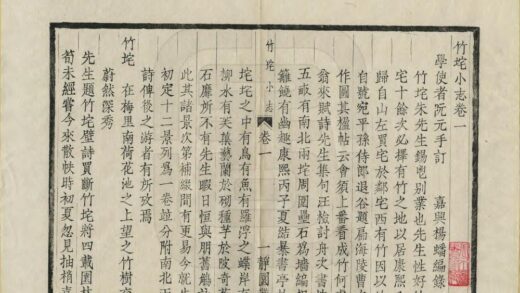 竹垞小志卷一
學使者阮元手訂 嘉興楊蟠編錄
竹垞朱先生錫鬯别業也先生性好
宅十餘次必擇有竹之地以居康熙
歸自山左買宅於鄰宅西有竹因以
自號宛平孫侍郎退谷題扁海陵曹
作圖其楹帖云會須上番看成竹何
翁來賦詩先生集句汪檢討舟次書
五畝有南北兩垞周圍壘石爲牆
籬饒有幽趣康熙丙子夏結曝書亭
竹垞小志 卷一 一 靜園
垞垞之中有鳥有魚有羅浮之蝶岸有
柳水有芙蕖藝蘭於砌種芋於陂奇
石靡所不有先生暇日恒與朋舊觴
此其諸景次第補綴間有更易今就
初定十二景列爲一卷竝分附南北
詩俾後之游者有所攷焉
竹垞 在梅里南荷花池之上望之竹樹
蔚然深秀
先生題竹垞壁詩買斷竹垞將四載園林
荀未經嘗今來散帙時初夏忽見抽梢喜